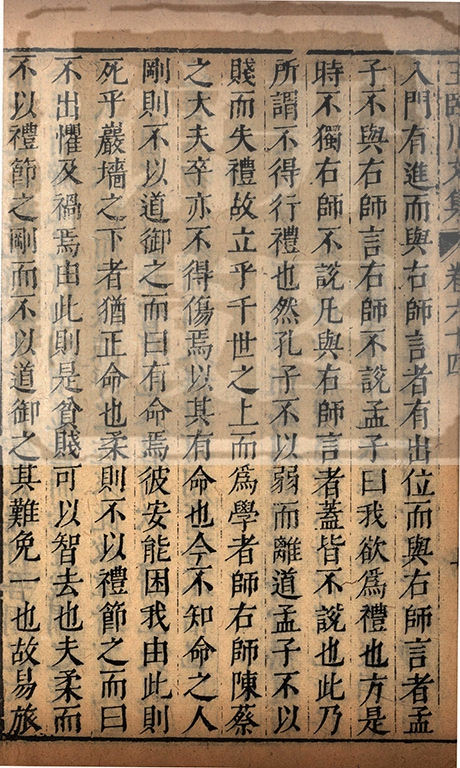 王臨川文集 卷六十四
入門有進而與右師言者有出位而與右師言者孟
子不與右師言右師不說孟子曰我欲爲禮也方是
時不獨右師不說凡與右師言者蓋皆不說也此乃
所謂不得行禮也然孔子不以弱而離道孟子不以
賤而失禮故立乎千世之上而爲學者師右師陳蔡
之大夫卒亦不得傷焉以其有命也今不知命之人
剛則不以道御之而曰有命焉彼安能困我由此則
死乎巖墻之下者猶正命也柔則不以禮節之而曰
不出懼及禍焉由此則是貧賤可以智去也夫柔而
不以禮節之剛而不以道御之其難免一也故易旅